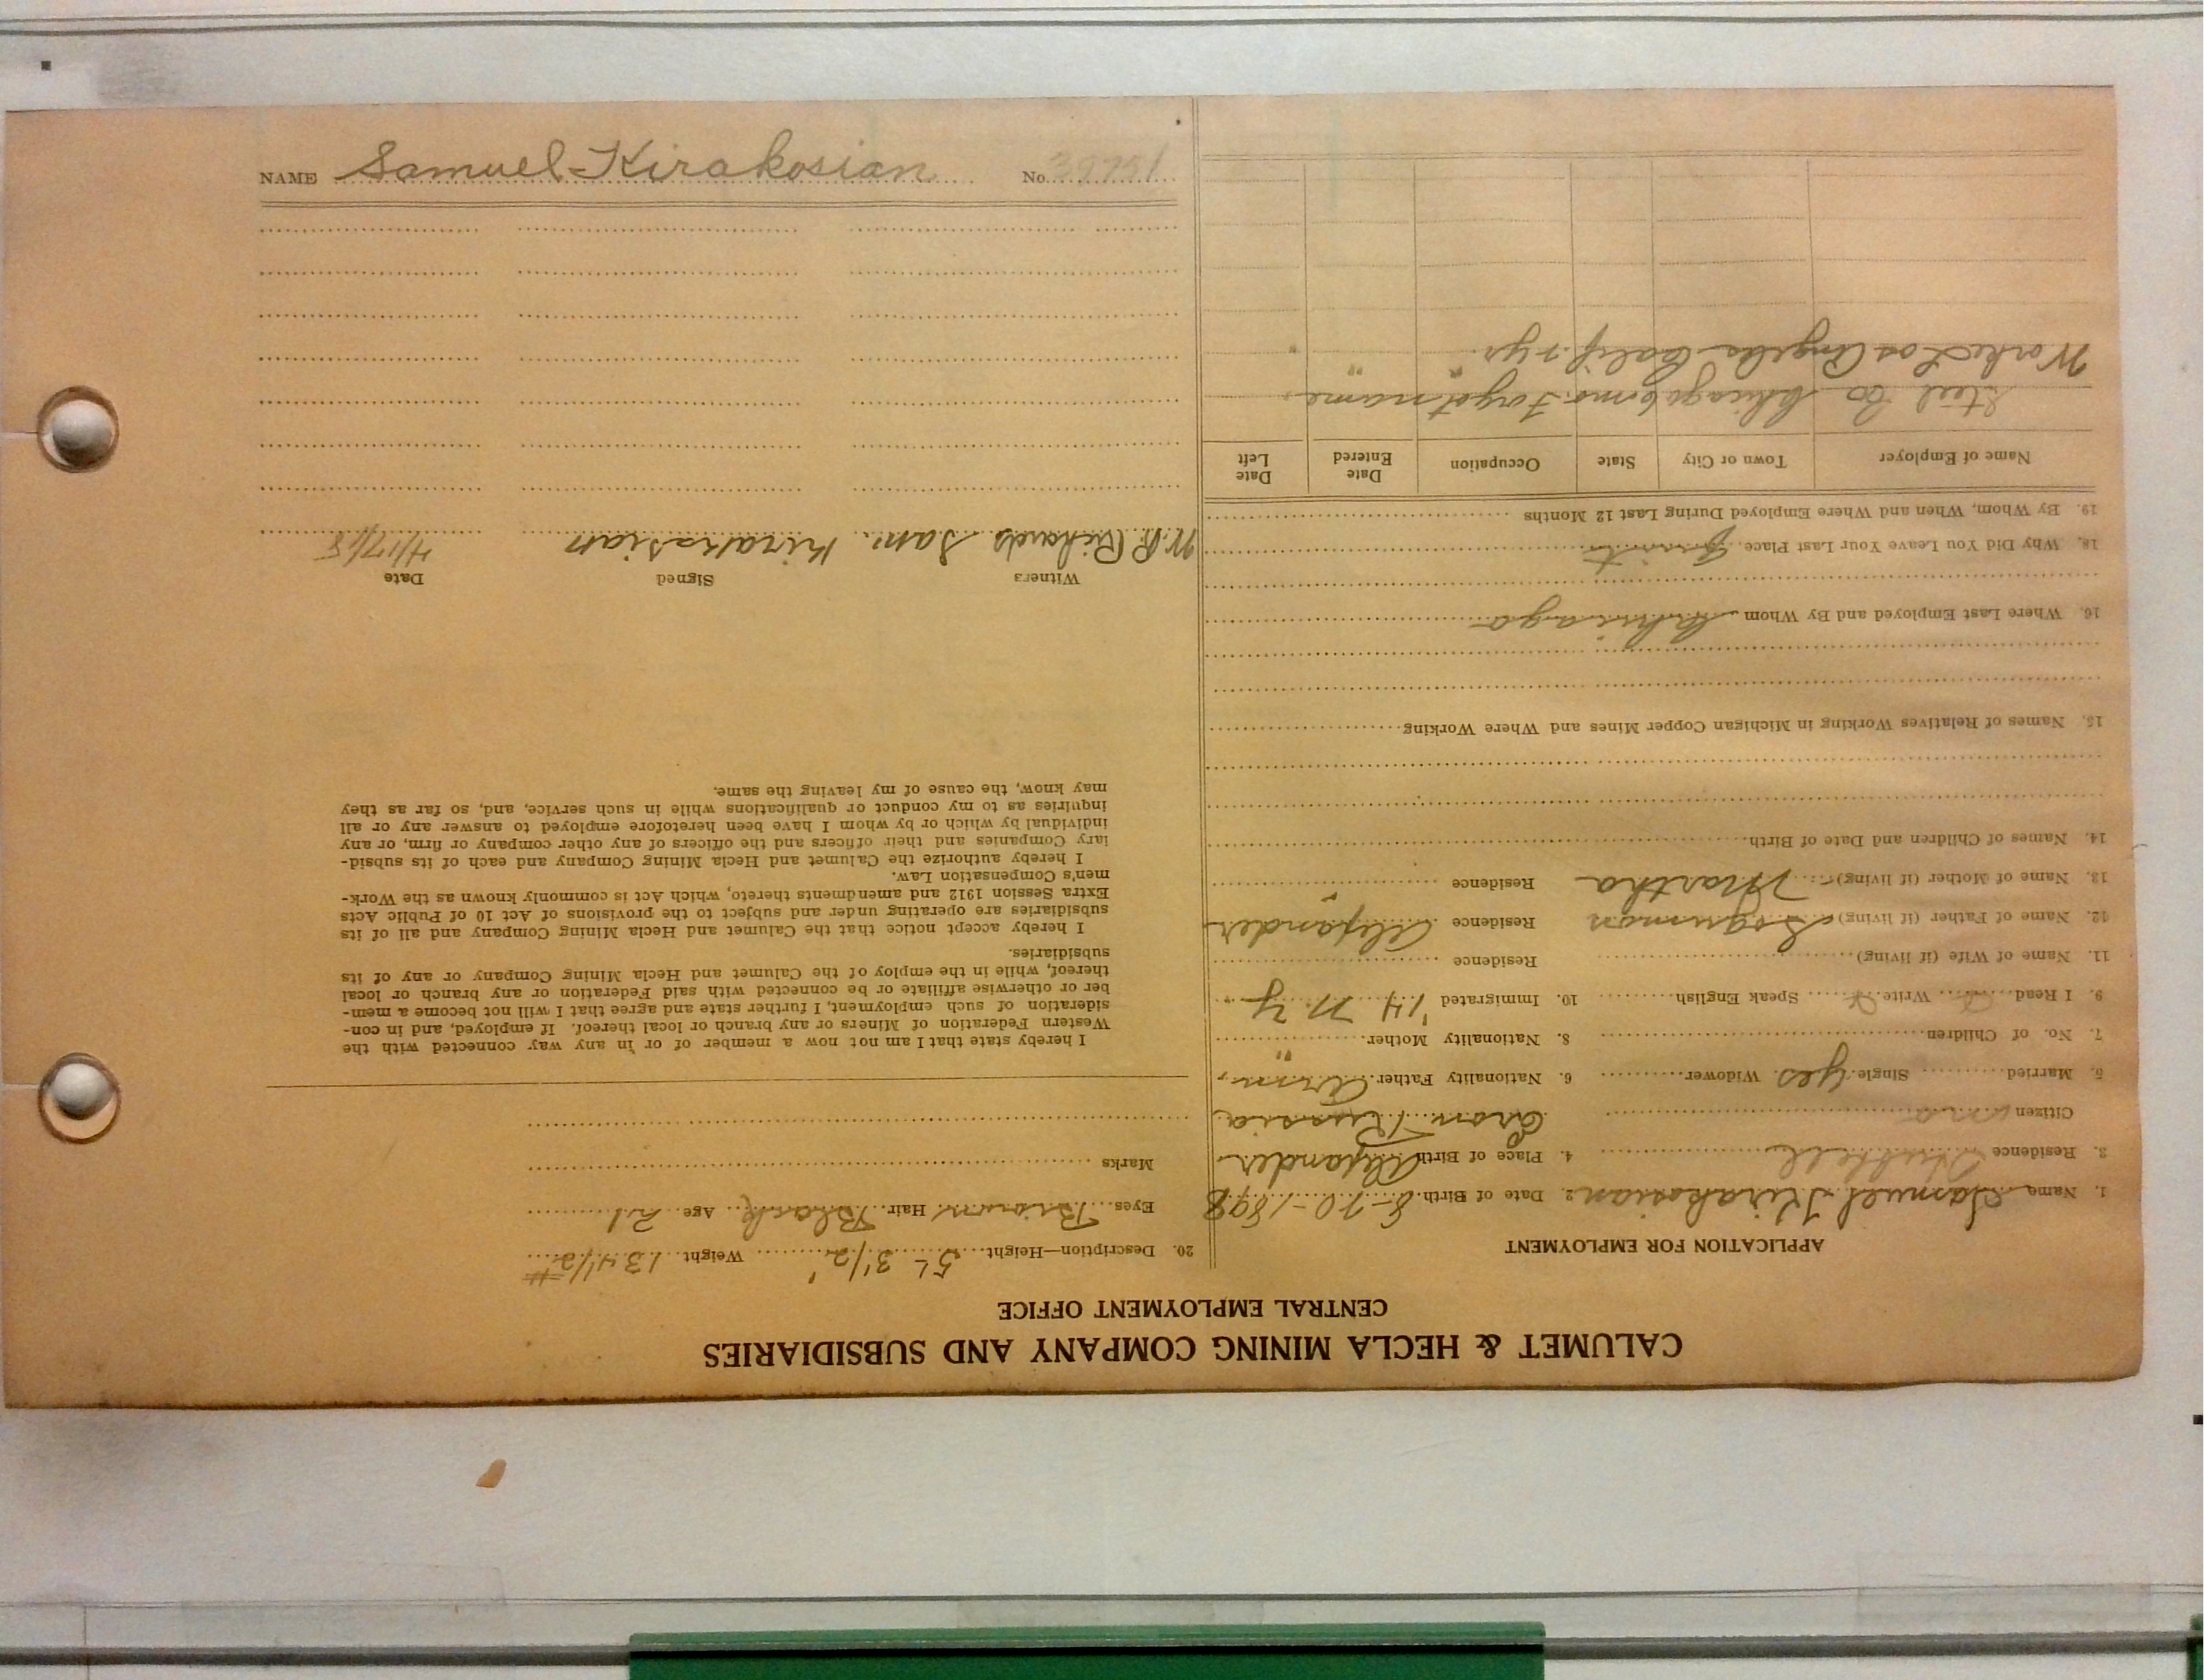 NAME Samuel Kirakosian No. 39751
CALUMET & HECLA MINING COMPANY AND SUBSIDIARIES
CENTRAL EMPLOYMENT OFFICE
APPLICATION FOR EMPLOYMENT
1. Name Samuel Kirakosian 2. Date of Birth 8-10-1898
3. Residence Hubbell 4. Place of Birth Alexander
Citizen no Russia
5. Married Single yes Widower 6. Nationality Father Arm.
7. No. of Children 8. Nationality Mother "
9. I Read Write Speak English 10. Immigrated '14 N.Y.
11. Name of Wife (if living) Residence
12. Name of Father (if living) Residence Alexander
13. Name of Mother (if living) Martha Residence "
14. Names of Children and Date of Birth
15. Names of Relatives Working in Michigan Copper Mines and Where Working
16. Where Last Employed and By Whom Chicago
18. Why Did You Leave Your Last Place
19. By Whom, When and Where Employed During Last 12 Months
Name of Employer Town or City State Occupation Date Entered Date Left
Steel Co Chicago 6 mo. Forgot name
Worked Los Angeles Calif. 1 yr " " "
20. Description—Height 5' 3 1/2" Weight 134 1/2 #
Eyes Brown Hair Black Age 21
Marks
I hereby state that I am not now a member of or in any way connected with the
Western Federation of Miners or any branch or local thereof. If employed, and in con-
sideration of such employment, I further state and agree that I will not become a mem-
ber or otherwise affiliate or be connected with said Federation or any branch or local
thereof, while in the employ of the Calumet and Hecla Mining Company or any of its
subsidiaries.
I hereby accept notice that the Calumet and Hecla Mining Company and all of its
subsidiaries are operating under and subject to the provisions of Act 10 of Public Acts
Extra Session 1912 and amendments thereto, which Act is commonly known as the Work-
men's Compensation Law.
I hereby authorize the Calumet and Hecla Mining Company and each of its subsid-
iary Companies and their officers and the officers of any other company or firm, or any
individual by which or by whom I have been heretofore employed to answer any or all
inquiries as to my conduct or qualifications while in such service, and, so far as they
may know, the cause of my leaving the same.
Witness Signed Date
W. R. Richards Sam Kirakosian 4/17/18